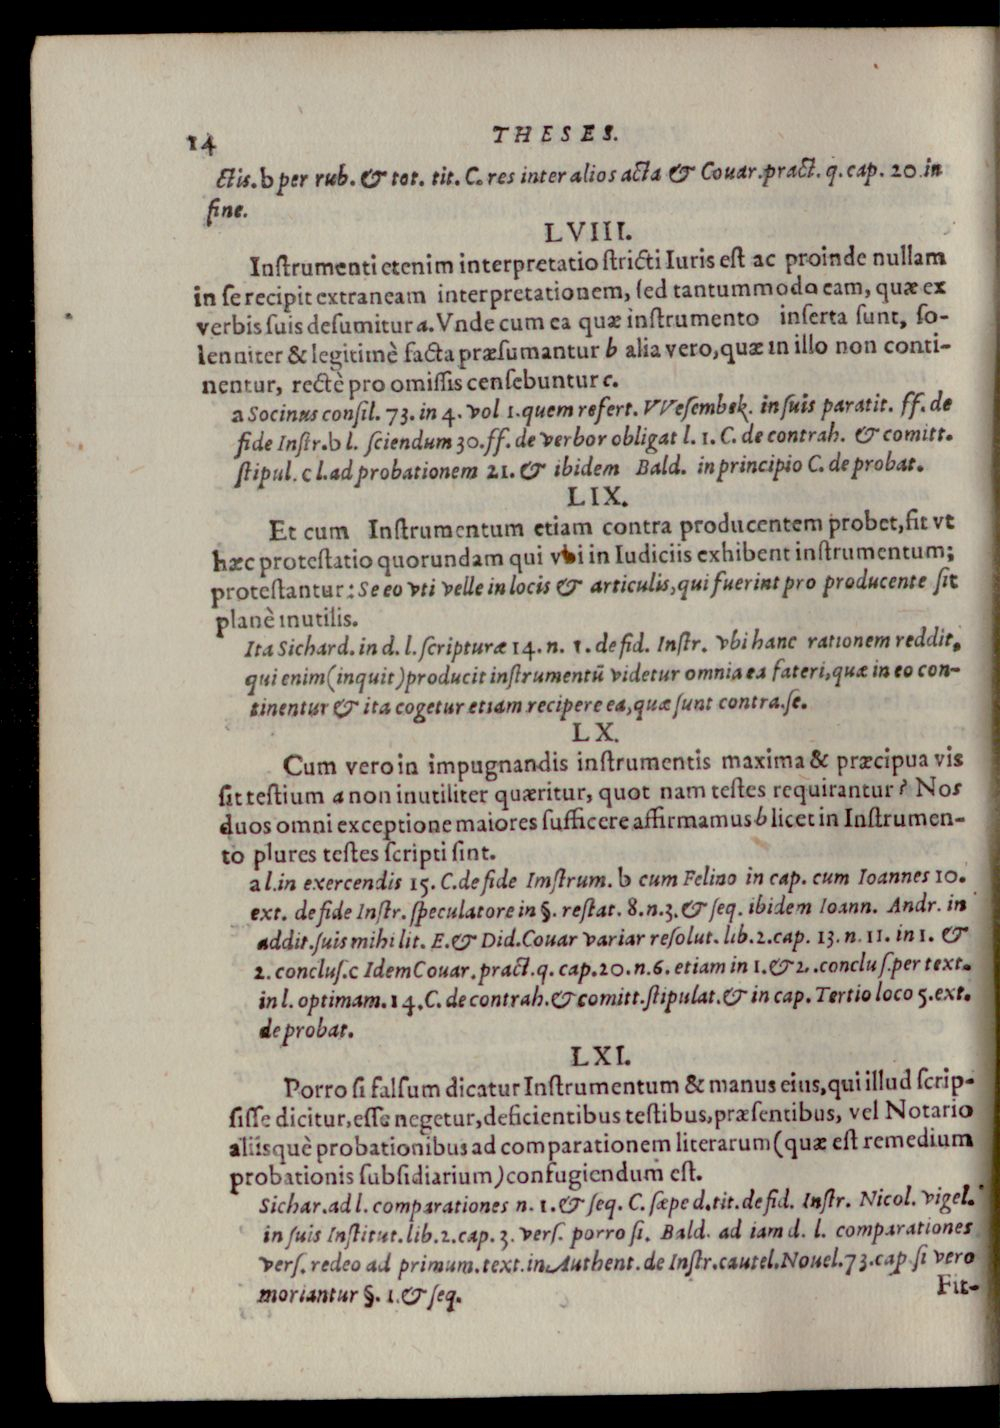 14 THESES.
ctis. b per rub. & tot. tit. C. res inter alios acta & Couar. pract. q. cap. 20. in
fine.
LVIII.
Inſtrumenti etenim interpretatio ſtricti Iuris eſt ac proinde nullam
in ſe recipit extraneam interpretationem, ſed tantummodo eam, quæ ex
verbis ſuis deſumitur a. Vnde cum ea quæ inſtrumento inſerta ſunt, ſo-
lenniter & legitimè facta præſumantur b alia vero, quæ in illo non conti-
nentur, rectè pro omiſſis cenſebuntur c.
a Socinus conſil. 73. in 4. vol 1. quem refert. VVeſembek. in ſuis paratit. ff. de
fide Inſtr. b l. ſciendum 30. ff. de verbor obligat l. 1. C. de contrah. & comitt.
ſtipul. c l. ad probationem 21. & ibidem Bald. in principio C. de probat.
LIX.
Et cum Inſtrumentum etiam contra producentem probet, fit vt
hæc proteſtatio quorundam qui vbi in Iudiciis exhibent inſtrumentum;
proteſtantur: Se eo vti velle in locis & articulis, qui fuerint pro producente ſit
planè inutilis.
Ita Sichard. in d. l. ſcripturæ 14. n. 1. de fid. Inſtr. vbi hanc rationem reddit,
qui enim (inquit) producit inſtrumentū videtur omnia ea fateri, quæ in eo con-
tinentur & ita cogetur etiam recipere ea, quæ ſunt contra. ſe.
LX.
Cum vero in impugnandis inſtrumentis maxima & præcipua vis
ſit teſtium a non inutiliter quæritur, quot nam teſtes requirantur? Nos
duos omni exceptione maiores ſufficere affirmamus b licet in Inſtrumen-
to plures teſtes ſcripti ſint.
a l. in exercendis 15. C. de fide Imſtrum. b cum Felino in cap. cum Ioannes 10.
ext. de fide Inſtr. ſpeculatore in §. reſtat. 8. n. 3. & ſeq. ibidem Ioann. Andr. in
addit. ſuis mihi lit. E. & Did. Couar variar reſolut. lib. 2. cap. 13. n. 11. in 1. &
2. concluſ. c Idem Couar. pract. q. cap. 20. n. 6. etiam in 1. & 2. concluſ. per text.
in l. optimam. 14. C. de contrah. & comitt. ſtipulat. & in cap. Tertio loco 5. ext.
de probat.
LXI.
Porro ſi falſum dicatur Inſtrumentum & manus eius, qui illud ſcrip-
ſiſſe dicitur, eſſe negetur, deficientibus teſtibus, præſentibus, vel Notario
aliisquè probationibus ad comparationem literarum (quæ eſt remedium
probationis ſubſidiarium) confugiendum eſt.
Sichar. ad l. comparationes n. 1. & ſeq. C. ſæpe d. tit. de fid. Inſtr. Nicol. vigel.
in ſuis Inſtitut. lib. 2. cap. 3. verſ. porro ſi. Bald. ad iam d. l. comparationes
verſ. redeo ad primum. text. in Authent. de Inſtr. cautel. Nouel. 73. cap. ſi vero
moriantur §. 1. & ſeq.
Fit-